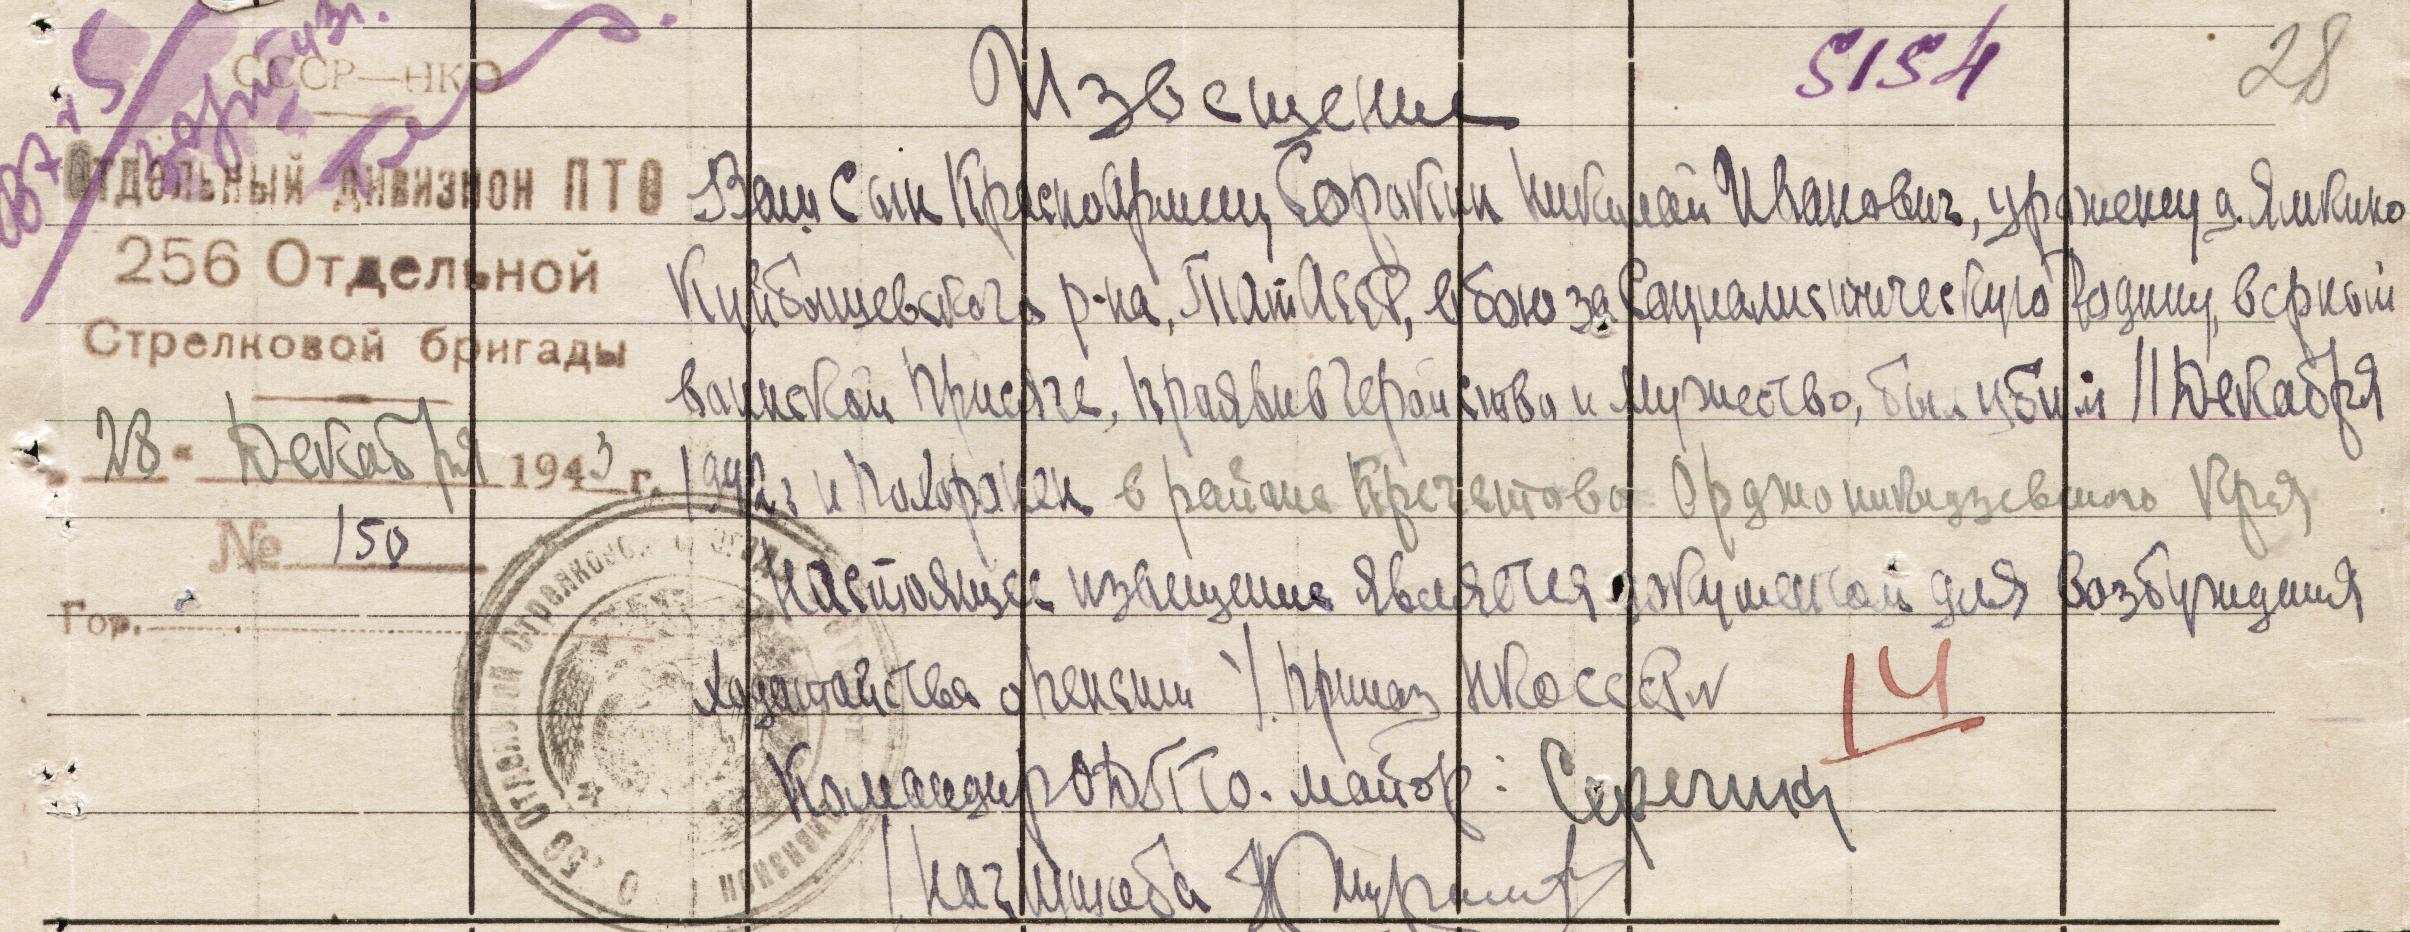 СССР—НКО
Отдельный дивизион ПТО
256 Отдельной
Стрелковой бригады
28 " Декабря 1943 г.
№ 150
Гор.
Извещение
5154
28
Ваш Сын Красноармеец Соракин Николай Иванович, уроженец д. Ямкино
Куйбышевского р-на, ТатАССР, в бою за Социалистическую Родину, верный
воинской присяге, проявив геройство и мужество, был убит 11 Декабря
1942 г и похоронен в районе Орджоникидзевского Края
Настоящее извещение является документом для возбуждения
ходатайства о пенсии приказ НКО СССР №
14
Командир ОДПТО. майор:
Нач штаба